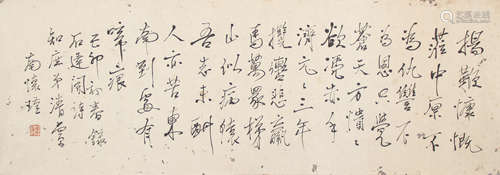 揚鞭慷慨
蒞中原不
為仇讐不
為恩只覺
蒼天方憒々
欲憑赤手
濟元々三年
攬轡悲羸
馬萬眾梯
山似病猿
吾志未酬
人亦苦東
南到處有
啼痕
己卯初春錄
石達開詩
知庵弟清賞
南懷瑾